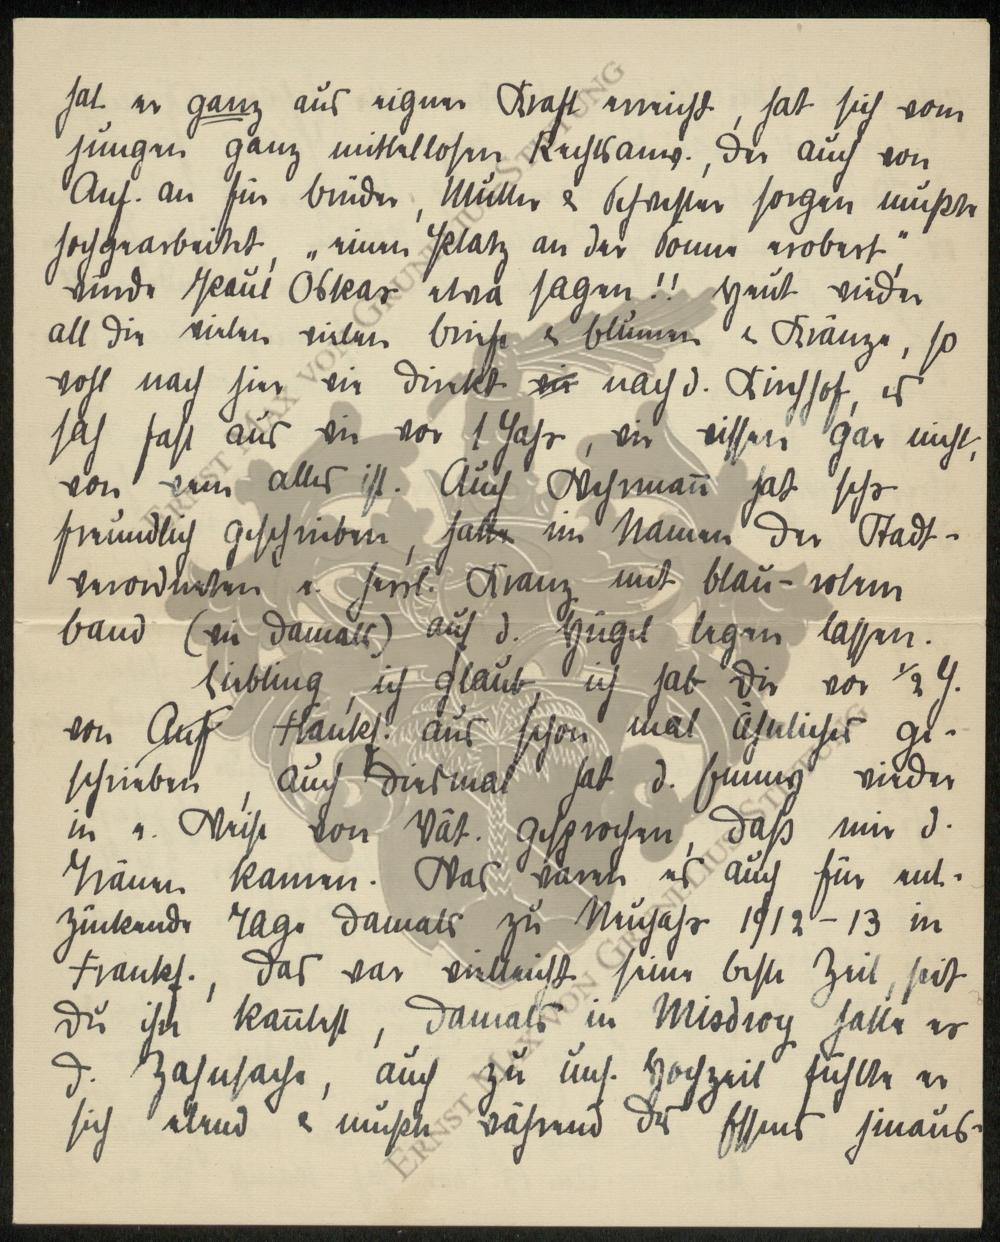 hat er ganz aus eigner Kraft erreicht, hat sich vom
jungen ganz mittellosen Rechtsanw., der auch von
Anf. an für Brüder, Mutter & Schwester sorgen mußte
hochgearbeitet, „einen Platz an der Sonne erobert“,
würde Paul Oskar etwa sagen!! Heut wieder
all die vielen vielen Briefe & Blumen & Kränze, so
wohl nach hier wie direkt nach d. Kirchhof, es
sah fast aus wie vor 1 Jahr, wir wissen gar nicht,
von wem alles ist. Auch Wehrmann̄ hat sehr
freundlich geschrieben, hatte im Namen der Stadt-
verordneten e. herrl. Kranz mit blau-rotem
Band (wie damals) auf d. Hügel legen lassen.
Liebling, ich glaub, ich hab Dir vor ½ J.
von Frankf. aus schon mal ähnliches ge-
schrieben, auch diesmal hat d. wieder
in e. Weise von Vat. gesprochen, daß mir d.
Tränen kamen. Was waren es auch für ent-
zückende Tage damals zu Neujahr 1912-13 in
Frankf., das war vielleicht seine beste Zeit, seit
Du ihn kan̄test, damals in Misdroy hatte er
d. Zahnsache, auch zu uns. Hochzeit fühlte er
sich elend & mußte während des Essens hinaus-
ERNST MAX VON GRUNELIUS-STIFTUNG
ERNST MAX VON GRUNELIUS-STIFTUNG